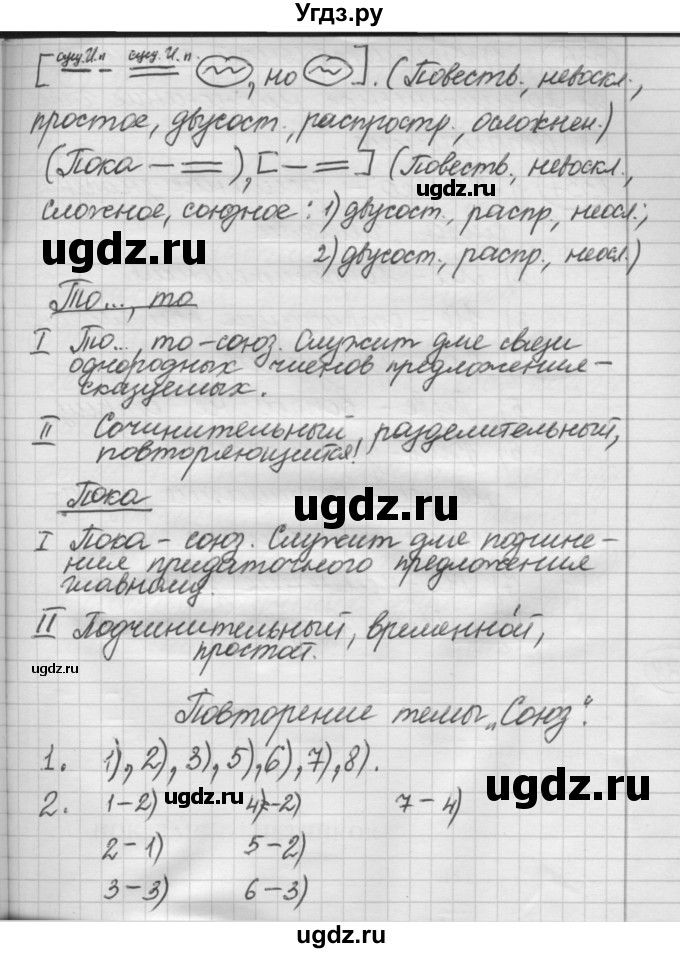 Угдз.ру
[сущ. И.п сущ. И.п. , но ]. (Повеств., невоскл.,
простое, двусост., распростр., осложнен.)
(Пока – = ), [ – = ] (Повеств., невоскл.,
ugdz.ru
сложное, союзное: 1) двусост., распр., неосл.;
ugdz.ru ugdz.ru
2) двусост., распр., неосл.)
То..., то
I То..., то – союз. Служит для связи
однородных членов предложения –
сказуемых.
II Сочинительный, разделительный,
повторяющийся!
Пока
ugdz.ru
I Пока – союз. Служит для подчине-
ния придаточного предложения
главному.
II Подчинительный, временной,
простой.
ugdz.ru
Повторение темы „Союз".
1. 1), 2), 3), 5), 6), 7), 8).
ugdz.ru
2. 1–2) ugdz.ru 4–2) 7–4)
2–1) 5–2)
3–3) 6–3)
ugdz.ru
ugdz.ru